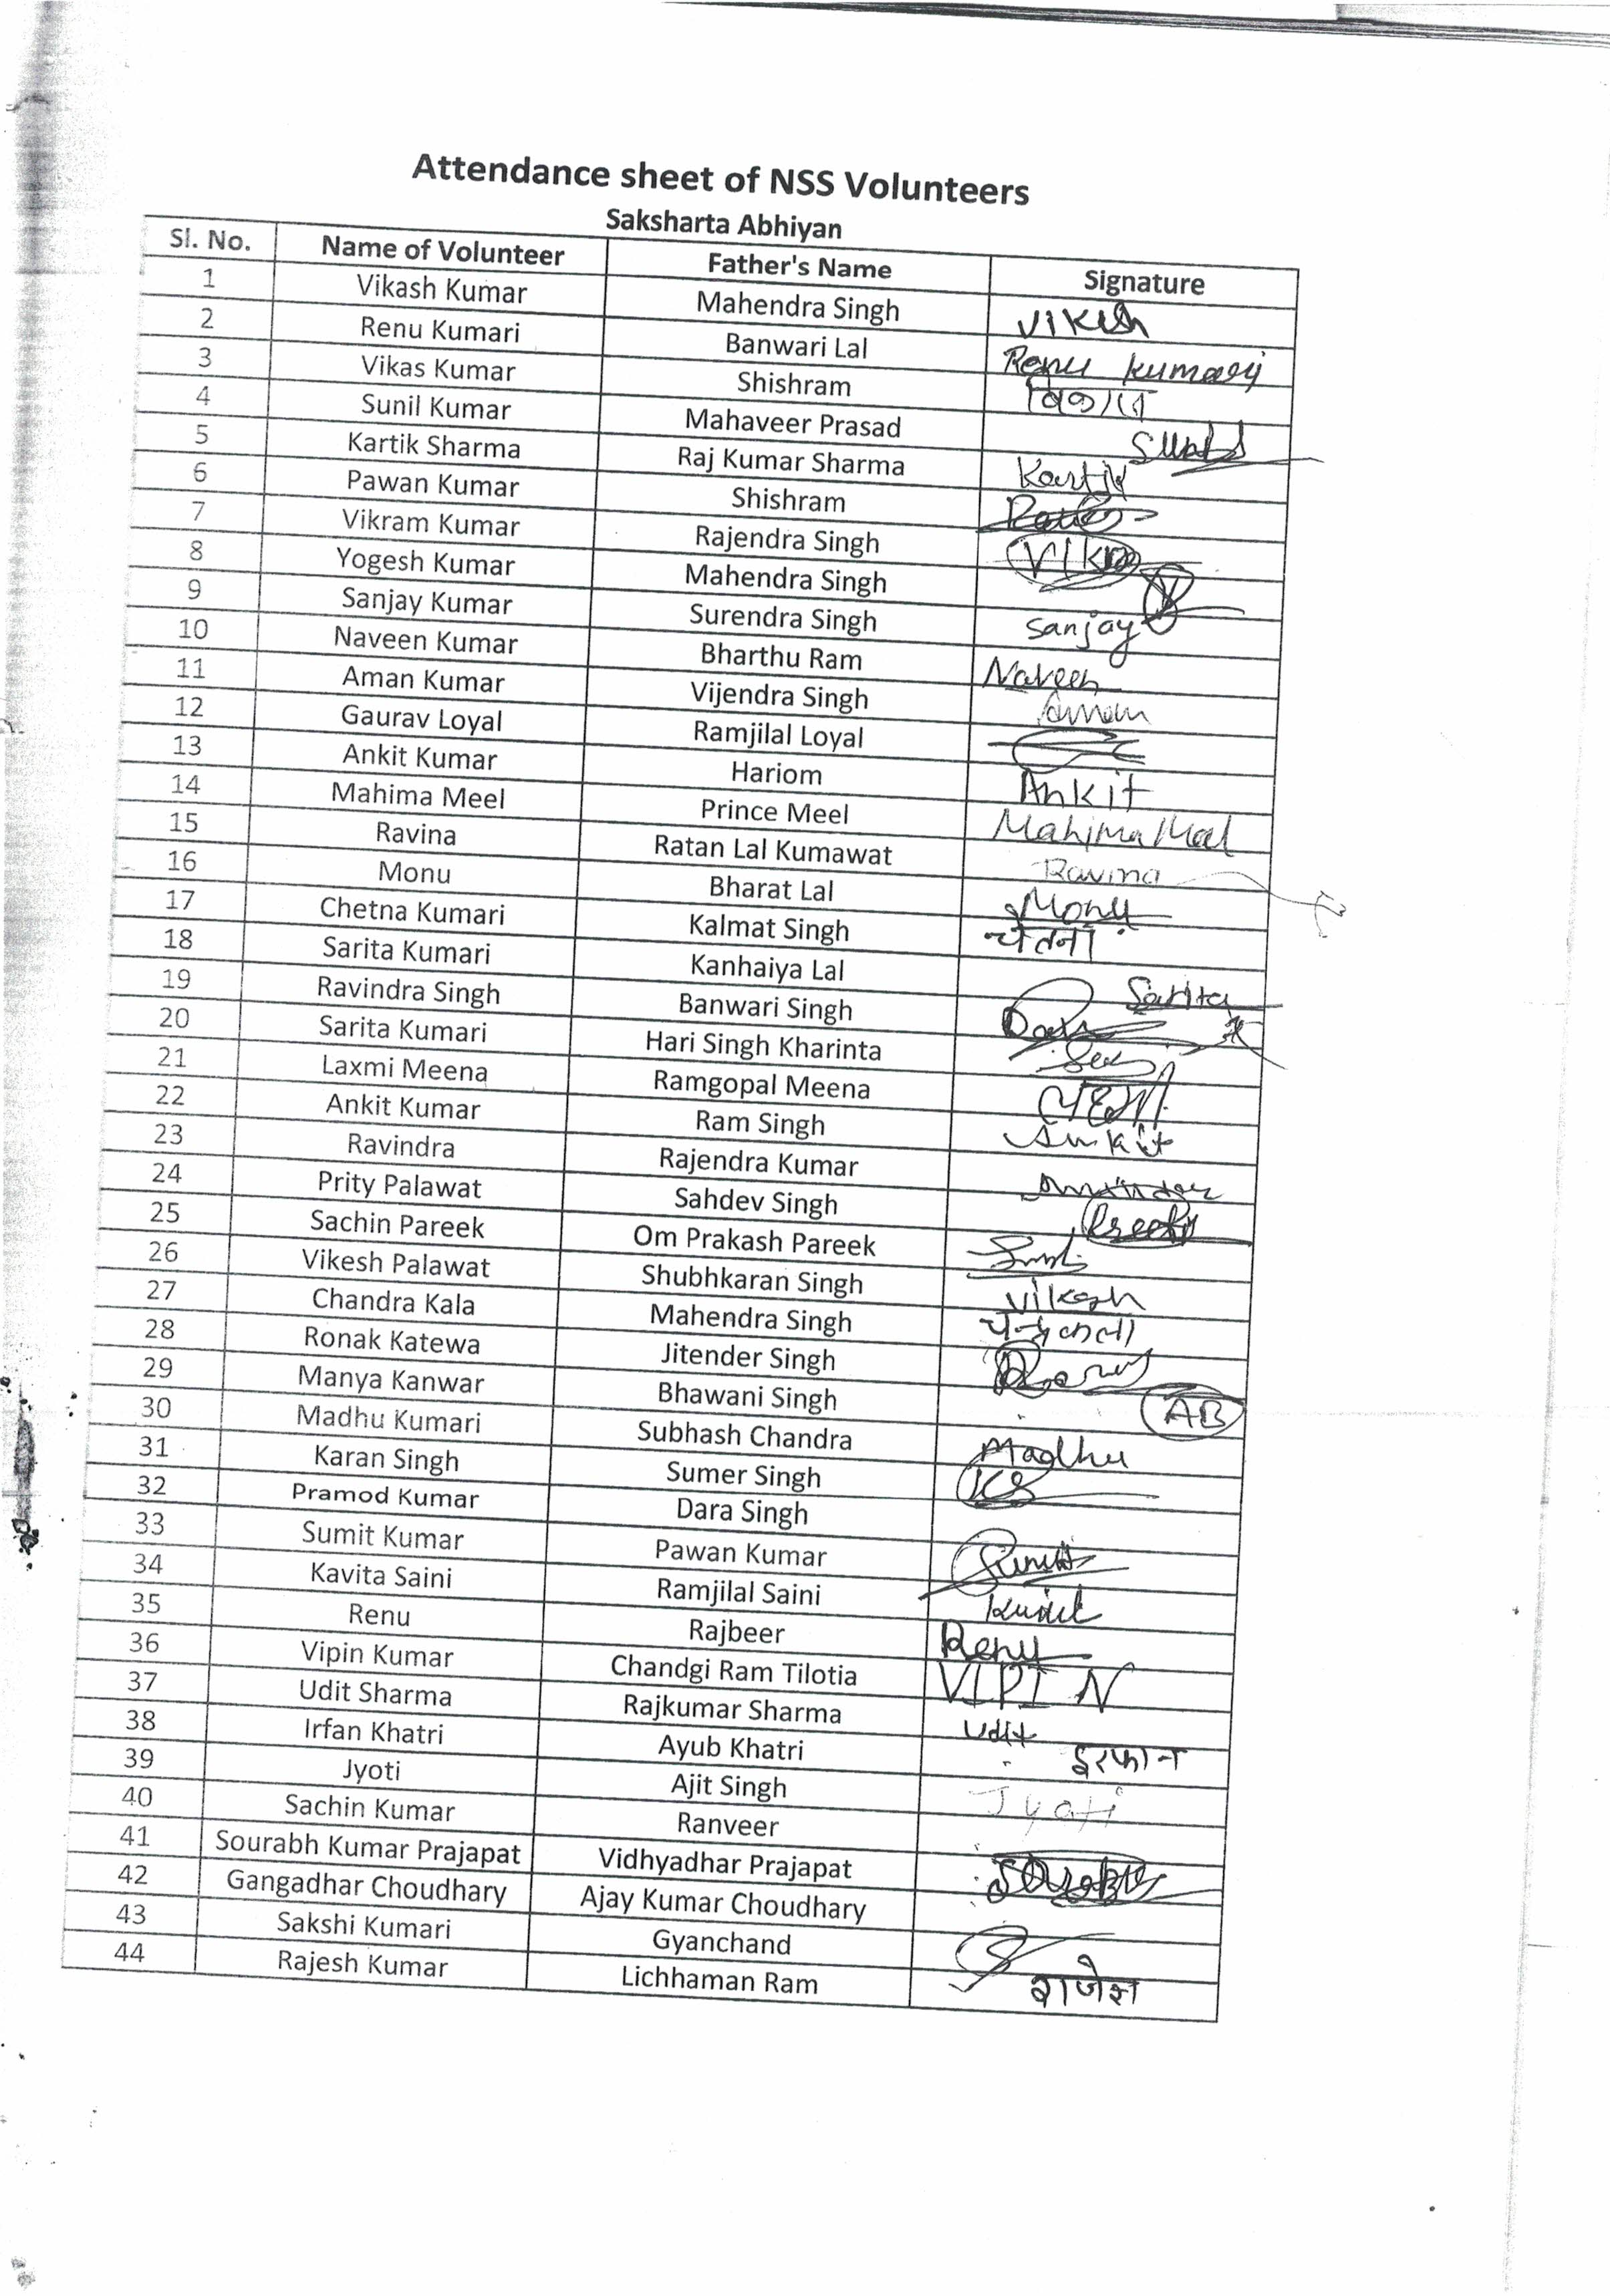 Attendance sheet of NSS Volunteers
Saksharta Abhiyan
Sl. No. Name of Volunteer Father's Name Signature
1 Vikash Kumar Mahendra Singh Vikash
2 Renu Kumari Banwari Lal Renu Kumari
3 Vikas Kumar Shishram विकास
4 Sunil Kumar Mahaveer Prasad
5 Kartik Sharma Raj Kumar Sharma Kartik
6 Pawan Kumar Shishram
7 Vikram Kumar Rajendra Singh
8 Yogesh Kumar Mahendra Singh
9 Sanjay Kumar Surendra Singh Sanjay
10 Naveen Kumar Bharthu Ram Naveen
11 Aman Kumar Vijendra Singh Aman
12 Gaurav Loyal Ramjilal Loyal
13 Ankit Kumar Hariom Ankit
14 Mahima Meel Prince Meel Mahima Meel
15 Ravina Ratan Lal Kumawat Ravina
16 Monu Bharat Lal Monu
17 Chetna Kumari Kalmat Singh चेतना
18 Sarita Kumari Kanhaiya Lal Sarita
19 Ravindra Singh Banwari Singh
20 Sarita Kumari Hari Singh Kharinta
21 Laxmi Meena Ramgopal Meena
22 Ankit Kumar Ram Singh Ankit
23 Ravindra Rajendra Kumar
24 Prity Palawat Sahdev Singh
25 Sachin Pareek Om Prakash Pareek
26 Vikesh Palawat Shubhkaran Singh Vikesh
27 Chandra Kala Mahendra Singh चन्द्रकला
28 Ronak Katewa Jitender Singh
29 Manya Kanwar Bhawani Singh AB
30 Madhu Kumari Subhash Chandra Madhu
31 Karan Singh Sumer Singh KS
32 Pramod Kumar Dara Singh
33 Sumit Kumar Pawan Kumar Sumit
34 Kavita Saini Ramjilal Saini
35 Renu Rajbeer Renu
36 Vipin Kumar Chandgi Ram Tilotia VIPIN
37 Udit Sharma Rajkumar Sharma Udit
38 Irfan Khatri Ayub Khatri इरफान
39 Jyoti Ajit Singh Jyoti
40 Sachin Kumar Ranveer
41 Sourabh Kumar Prajapat Vidhyadhar Prajapat
42 Gangadhar Choudhary Ajay Kumar Choudhary
43 Sakshi Kumari Gyanchand
44 Rajesh Kumar Lichhaman Ram राजेश